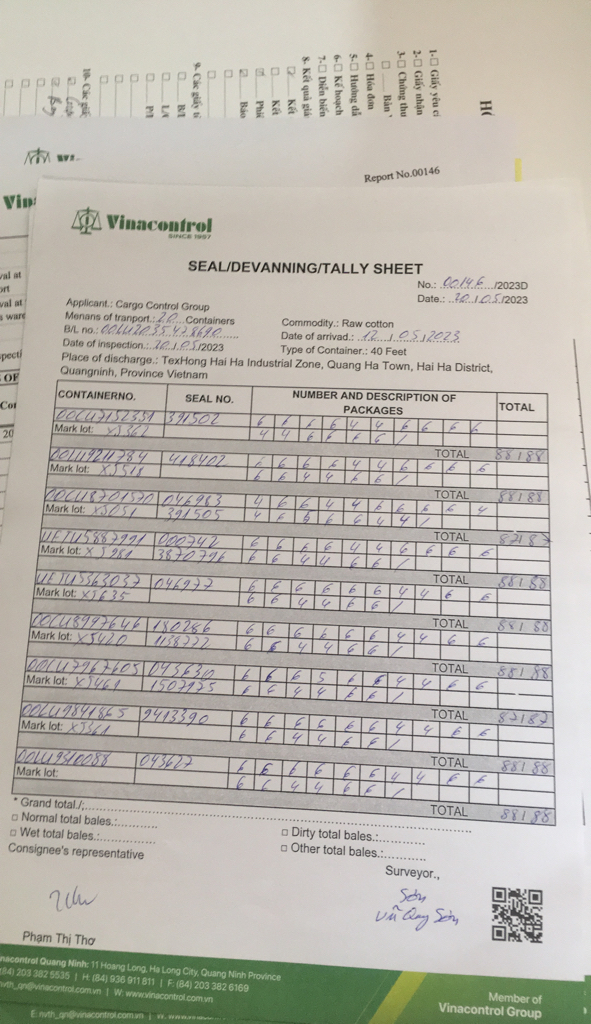 1-☐ Giấy yêu c
2-☐ Giấy nhận
3-☐ Chứng thư
☐ Bản
4-☐ Hóa đơn
5-☐ Hướng dẫ
6-☐ Kế hoạch
7-☐ Diễn biến
8- Kết quả giá
☐ Kết
☐ Kết
☐ Phiế
☐ Báo
9- Các giấy t
☐ B/I
☐ L/
☐ P/I
10- Các giấ
Report No.00146
Vinacontrol
SINCE 1957
SEAL/DEVANNING/TALLY SHEET
No.: 00146 /2023D
Date.: 20/05/2023
Applicant.: Cargo Control Group
Menans of tranport.: 20 Containers
Commodity.: Raw cotton
B/L no.: OOLU2035478690
Date of arrivad.: 12/05/2023
Date of inspection.: 20/05/2023
Type of Container.: 40 Feet
Place of discharge.: TexHong Hai Ha Industrial Zone, Quang Ha Town, Hai Ha District,
Quangninh, Province Vietnam
CONTAINERNO. SEAL NO. NUMBER AND DESCRIPTION OF PACKAGES TOTAL
391502 6 6 6 6 4 4 6 6 6 6
Mark lot: XJ362 4 4 6 6 6 6 /
TOTAL 88188
OOLU9211784 418402 6 6 6 6 4 4 6 6 6 6
Mark lot: XJ518 6 6 4 4 6 6 /
TOTAL 88188
OOLU8701570 046983 4 6 6 4 4 6 6 6 6 4
Mark lot: XJ051 391505 4 6 5 6 6 4 4 /
TOTAL 87187
UETU5887991 000742 6 6 6 6 4 4 6 6 6 6
Mark lot: XJ981 3870796 6 6 4 4 6 6 /
TOTAL 88188
UETU5563037 046977 6 6 6 6 6 6 4 4 6 6
Mark lot: XJ635 6 6 4 4 6 6 /
TOTAL 88188
OOLU8997646 180286 6 6 6 6 6 6 4 4 6 6
Mark lot: XJ420 6 6 4 4 6 6 /
TOTAL 88188
OOLU7967605 043630 6 6 6 5 6 6 4 4 6 6
Mark lot: XJ461 1507975 6 6 4 4 6 6 /
TOTAL 87187
OOLU9841865 9413390 6 6 6 6 6 6 4 4 6 6
Mark lot: XJ361 6 6 4 4 6 6 /
TOTAL 88188
OOLU9510088 043627 6 6 6 6 6 6 4 4 6 6
Mark lot: 6 6 4 4 6 6 /
TOTAL 88188
* Grand total./;
☐ Normal total bales.:
☐ Dirty total bales.:
☐ Wet total bales.:
☐ Other total bales.:
Consignee's representative
Surveyor.,
Sơn
Vũ Quang Sơn
Phạm Thị Thơ
nacontrol Quang Ninh: 11 Hoang Long, Ha Long City, Quang Ninh Province
(84) 203 382 5535 | H: (84) 936 911 811 | F: (84) 203 382 6169
nvth_qn@vinacontrol.com.vn | W: www.vinacontrol.com.vn
E: nvth_qn@vinacontrol.com.vn | W: www.vinacontrol.com.vn
Member of
Vinacontrol Group